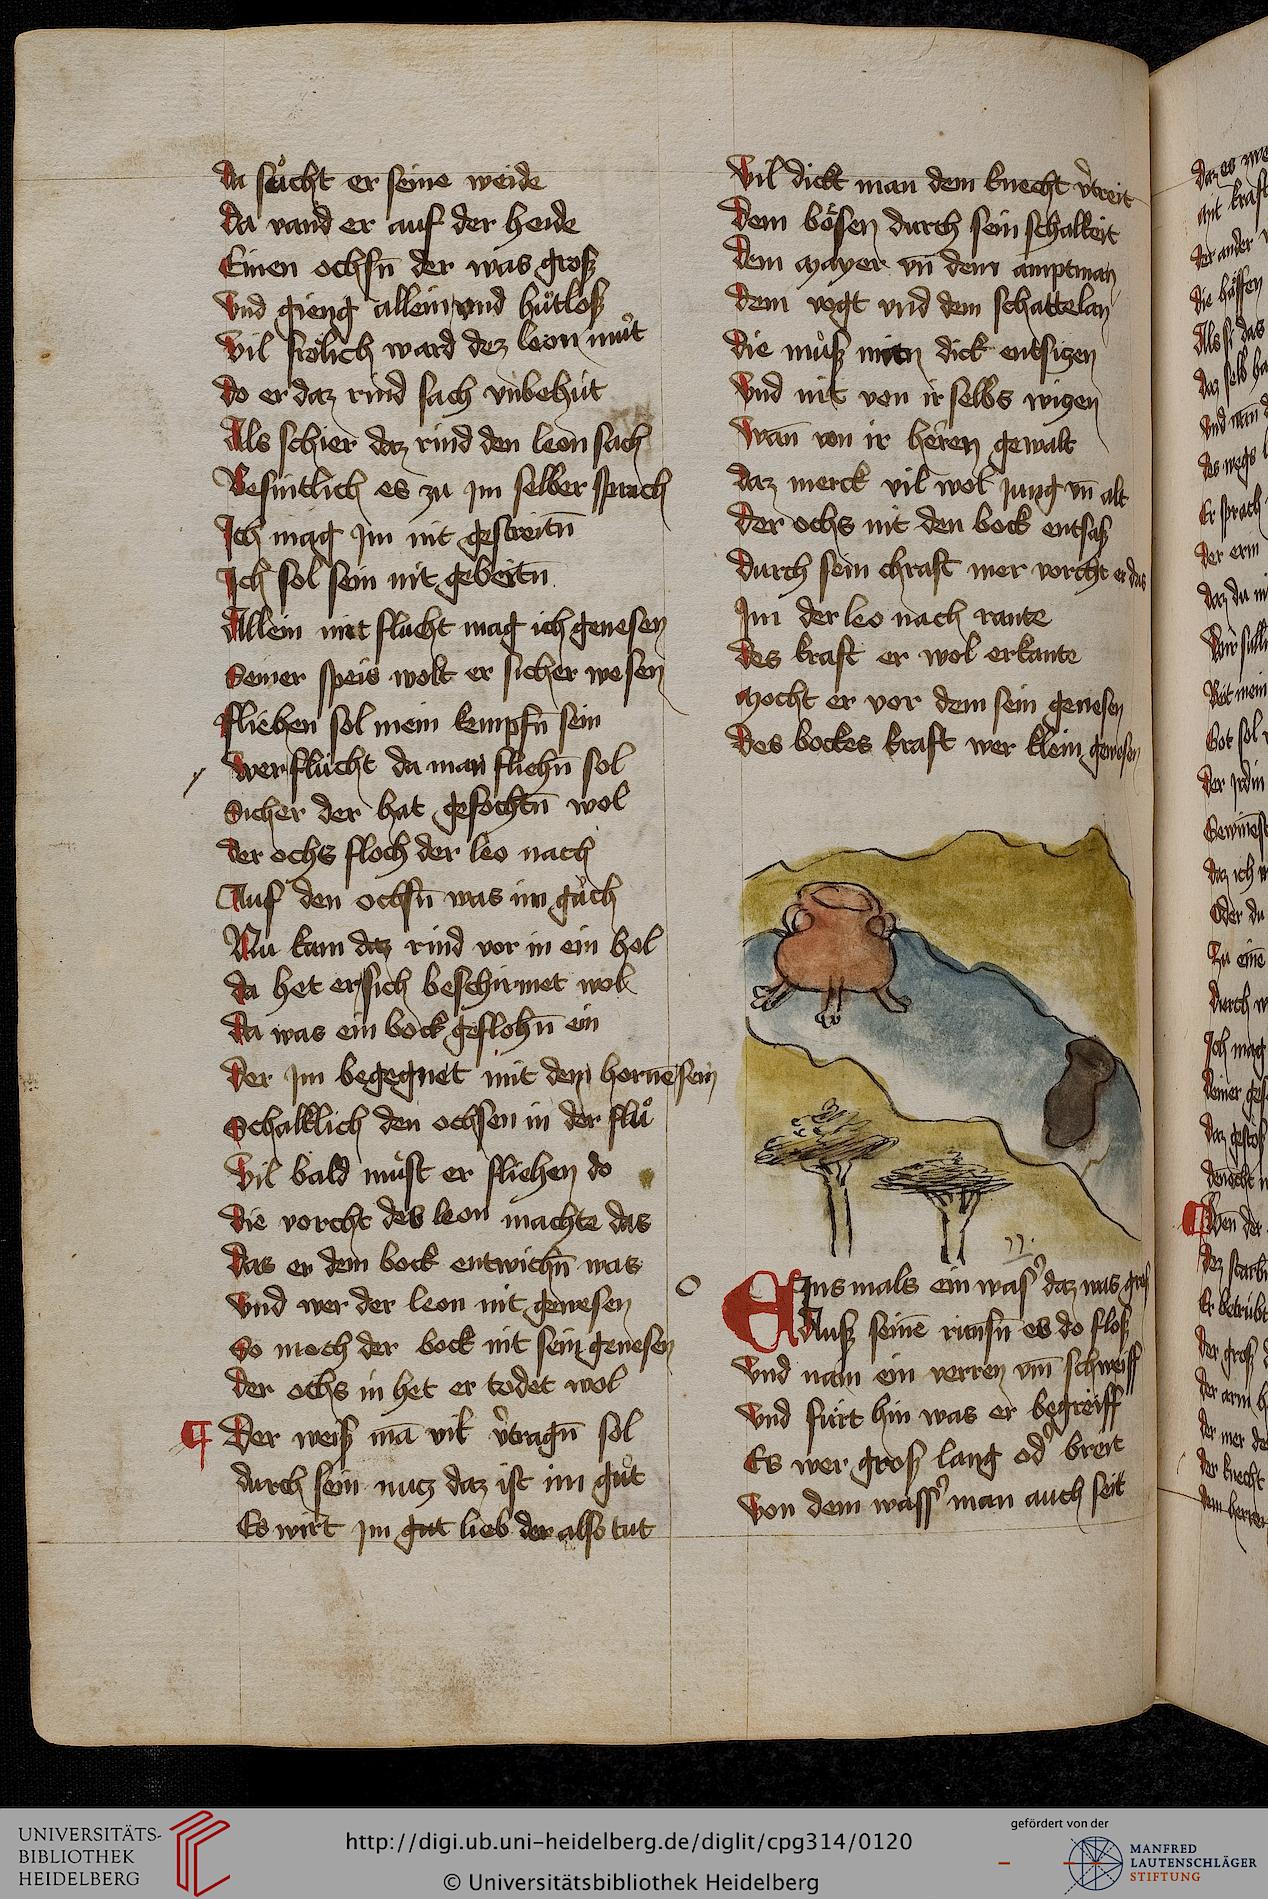 da sůcht er seine weide
Da vand er auf der heide
Einen ochsn̄ der was grosz
Vnd gieng allein vnd hůtlosz
Vil frölich ward dez leon můt
do er daz rind sach vnbehůt
Als schier daz rind den leon sach
Besintlich es zu jm selber sprach
Ich mag jm nit gestreitn̄
Ich sol sein nit gebeitn̄
Allein mit flucht mag ich genesen
Seiner speis wolt er sicher wesen
flieben sol mein kempfn̄ sein
wer flücht da man fliehn̄ sol
Sicher der hat gefochtn̄ wol
der ochs floch der leo nach
Auf den ochsn̄ was im gäch
Nu kam daz rind vor in ein hol
da het er sich beschirmet wol
da was ein bock geflohn̄ ein
der jm begegnet mit dem horne sein
Schalklich den ochsen in der flů
Vil bald můst er fliehen do
die vorcht des leon machte das
das er dem bock entwichn̄ was
Vnd wer der leon nit genesen
So moch der bock nit sein genesen
der ochs in het er todet wol
Der weisz mā vil v͛tragn̄ sol
durch sein nucz daz ist im gůt
Es wirt jm gut lieb der also tut
Vil dick man dem knecht v͛treit
dem bösen durch sein schalkeit
dem mayer vn̄ dem amptman
dem vogt vnd dem schattelan
die můsz man dick entsiczen
Vnd nit von ir selbs wiczen
Wan̄ von ir heren gewalt
daz merck vil wol jung vn̄ alt
der ochs nit den bock entsasz
durch sein chraft mer vorcht er das
Im der leo nach rante
des kraft er wol erkante
Mocht er vor dem sein genesen
Des bockes kraft wer klein gewesen
77.
Eins mals ein wass͛ daz was gros
Ausz seinē rimsn̄ es do flosz
Vnd nam ein verren vm̄ schweiff
Vnd fürt hin was er begreiff
Es wer grosz lang od͛ breit
Von dem wass͛ man auch seit
UNIVERSITÄTS-
BIBLIOTHEK
HEIDELBERG
http://digi.ub.uni-heidelberg.de/diglit/cpg314/0120
© Universitätsbibliothek Heidelberg
gefördert von der
MANFRED
LAUTENSCHLÄGER
STIFTUNG